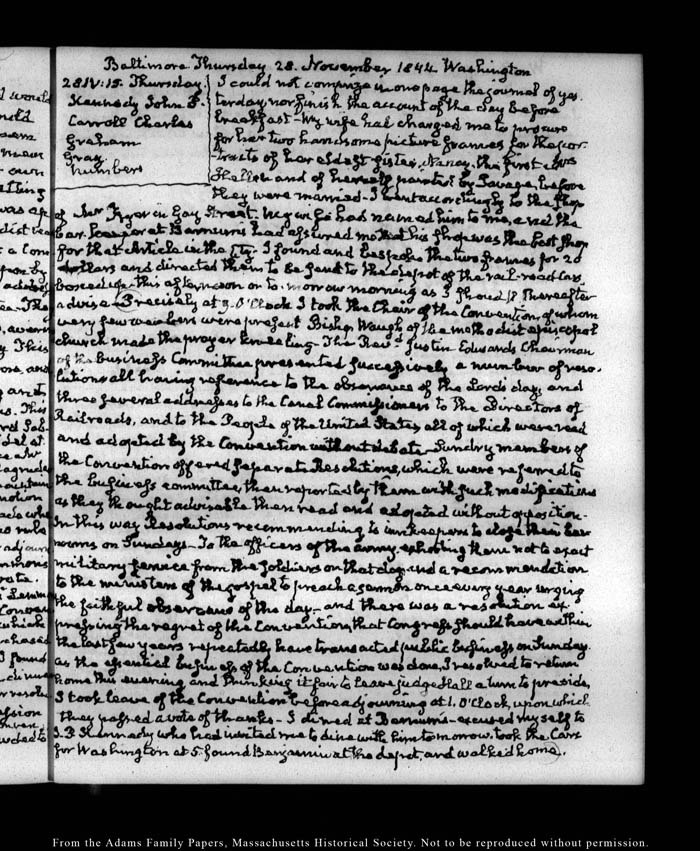 Baltimore Thursday 28. November 1844 Washington
28 IV:15. Thursday.
Kennedy John P.
Carroll Charles
Graham
Gray
Numbers
I could not comprize in one page the journal of yes-
terday nor finish the account of the day before
breakfast - My wife had charged me to procure
for her two handsome picture frames for the por-
-traits of her eldest sister, Nancy, the first
Hellen and of herself painted by Savage, before
they were married - I went accordingly to the shop
of Mr in Gay Street. he had named him to me, and the
bar-keeper at Barnum's had assured me that his shop was the best shop
for that Article in the City. I found and bespoke the two frames for 20
dollars and directed them to be sent to the depot of the rail-road cars,
boxed up this afternoon or to-morrow morning as I should thereafter
advise - Precisely at 9. O'Clock I took the Chair of the Convention, of whom
very few members were present Bishop Waugh of the methodist episcopal
church made the prayer kneeling - The Revd. Justin Edwards Chairman
of the business Committee presented successively a number of reso-
lutions all having reference to the observance of the Lord's day, and
three several addresses to the Canal Commissioners to the Directors of
Railroads, and to the People of the United States, all of which were read
and adopted by the Convention without debate - Sundry members of
the Convention offered separate Resolutions, which were referred to
the business committee, then reported by them with such modifications
as they thought advisable then read and adopted without opposition -
In this way Resolutions recommending to innkeepers to close their bar
rooms on Sundays - To the officers of the army, exhorting them not to exact
military service from the soldiers on that day and a recommendation
to the ministers of the gospel to preach a sermon once every year urging
the faithful observance of the day - and there was a resolution ex-
pressing the regret of the Convention, that Congress should have within
the last few years repeatedly have transacted public business on Sunday.
as the essential business of the Convention was done, I resolved to return
home this evening and thinking it fair to leave judge Hall a turn to preside,
I took leave of the Convention before adjourning at 1. O'Clock, upon which
they passed a vote of thanks - I dined at Barnum's - excused myself to
J. P. Kennedy who had invited me to dine with him to-morrow. took the Cars
for Washington at 5. found Benjamin at the depot, and walked home.
From the Adams Family Papers, Massachusetts Historical Society. Not to be reproduced without permission.